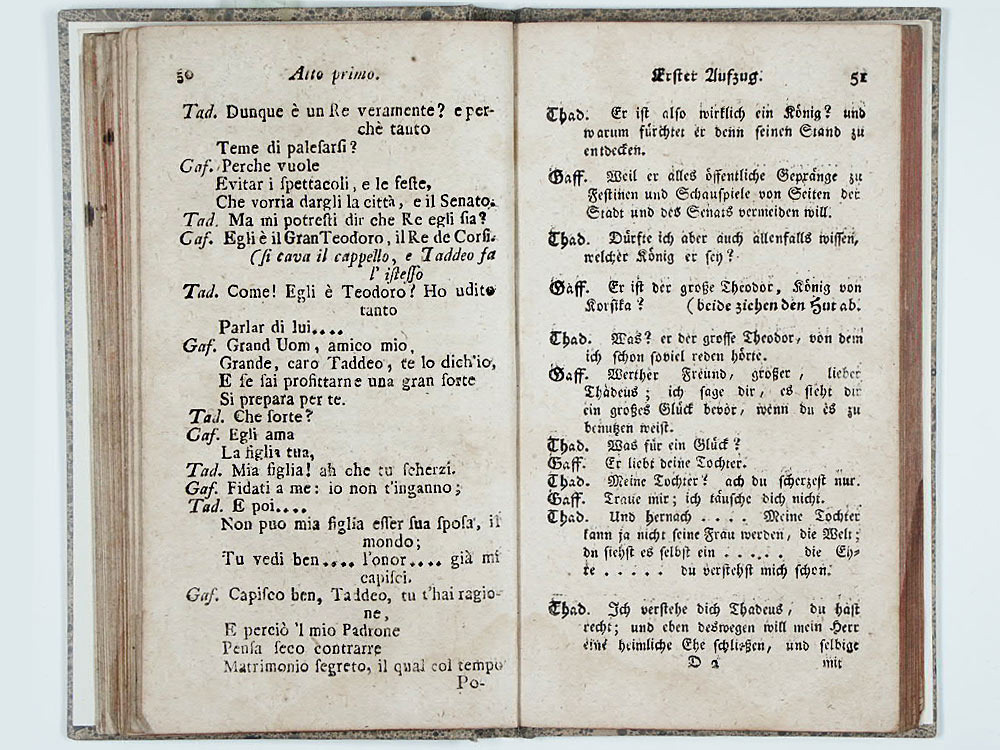 50 Atto primo.
Tad. Dunque è un Re veramente? e per-
chè tanto
Teme di paleſarſi?
Gaf. Perche vuole
Evitar i ſpettacoli, e le feſte,
Che vorria dargli la città, e il Senato.
Tad. Ma mi potreſti dir che Re egli ſia?
Gaf. Egli è il Gran Teodoro, il Re de Corſi.
(ſi cava il cappello, e Taddeo fa
l' iſteſſo
Tad. Come! Egli è Teodoro? Ho udito
tanto
Parlar di lui....
Gaf. Grand Uom, amico mio,
Grande, caro Taddeo, te lo dich'io,
E ſe ſai profittarne una gran ſorte
Si prepara per te.
Tad. Che ſorte?
Gaf. Egli ama
La figlia tua,
Tad. Mia figlia! ah che tu ſcherzi.
Gaf. Fidati a me: io non t'inganno;
Tad. E poi....
Non puo mia figlia eſſer ſua ſpoſa, il
mondo;
Tu vedi ben.... l'onor.... già mi
capiſci.
Gaf. Capiſco ben, Taddeo, tu t'hai ragio-
ne,
E perciò 'l mio Padrone
Penſa ſeco contrarre
Matrimonio ſegreto, il qual col tempo
Po-
Erſter Aufzug. 51
Thad. Er iſt alſo wirklich ein König? und
warum fürchtet er denn ſeinen Stand zu
entdecken.
Gaff. Weil er alles öffentliche Gepränge zu
Feſtinen und Schauſpiele von Seiten der
Stadt und des Senats vermeiden will.
Thad. Dürfte ich aber auch allenfalls wiſſen,
welcher König er ſey?
Gaff. Er iſt der große Theodor, König von
Korſika? (beide ziehen den Hut ab.
Thad. Was? er der groſſe Theodor, von dem
ich ſchon ſoviel reden hörte.
Gaff. Werther Freund, großer, lieber
Thadeus; ich ſage dir, es ſteht dir
ein großes Glück bevor, wenn du es zu
benutzen weiſt.
Thad. Was für ein Glück?
Gaff. Er liebt deine Tochter.
Thad. Meine Tochter? ach du ſcherzeſt nur.
Gaff. Traue mir; ich täuſche dich nicht.
Thad. Und hernach .... Meine Tochter
kann ja nicht ſeine Frau werden, die Welt;
du ſiehſt es ſelbſt ein ..... die Eh-
re ..... du verſtehſt mich ſchon.
Thad. Ich verſtehe dich Thadeus, du haſt
recht; und eben deswegen will mein Herr
eine heimliche Ehe ſchließen, und ſelbige
D 2 mit